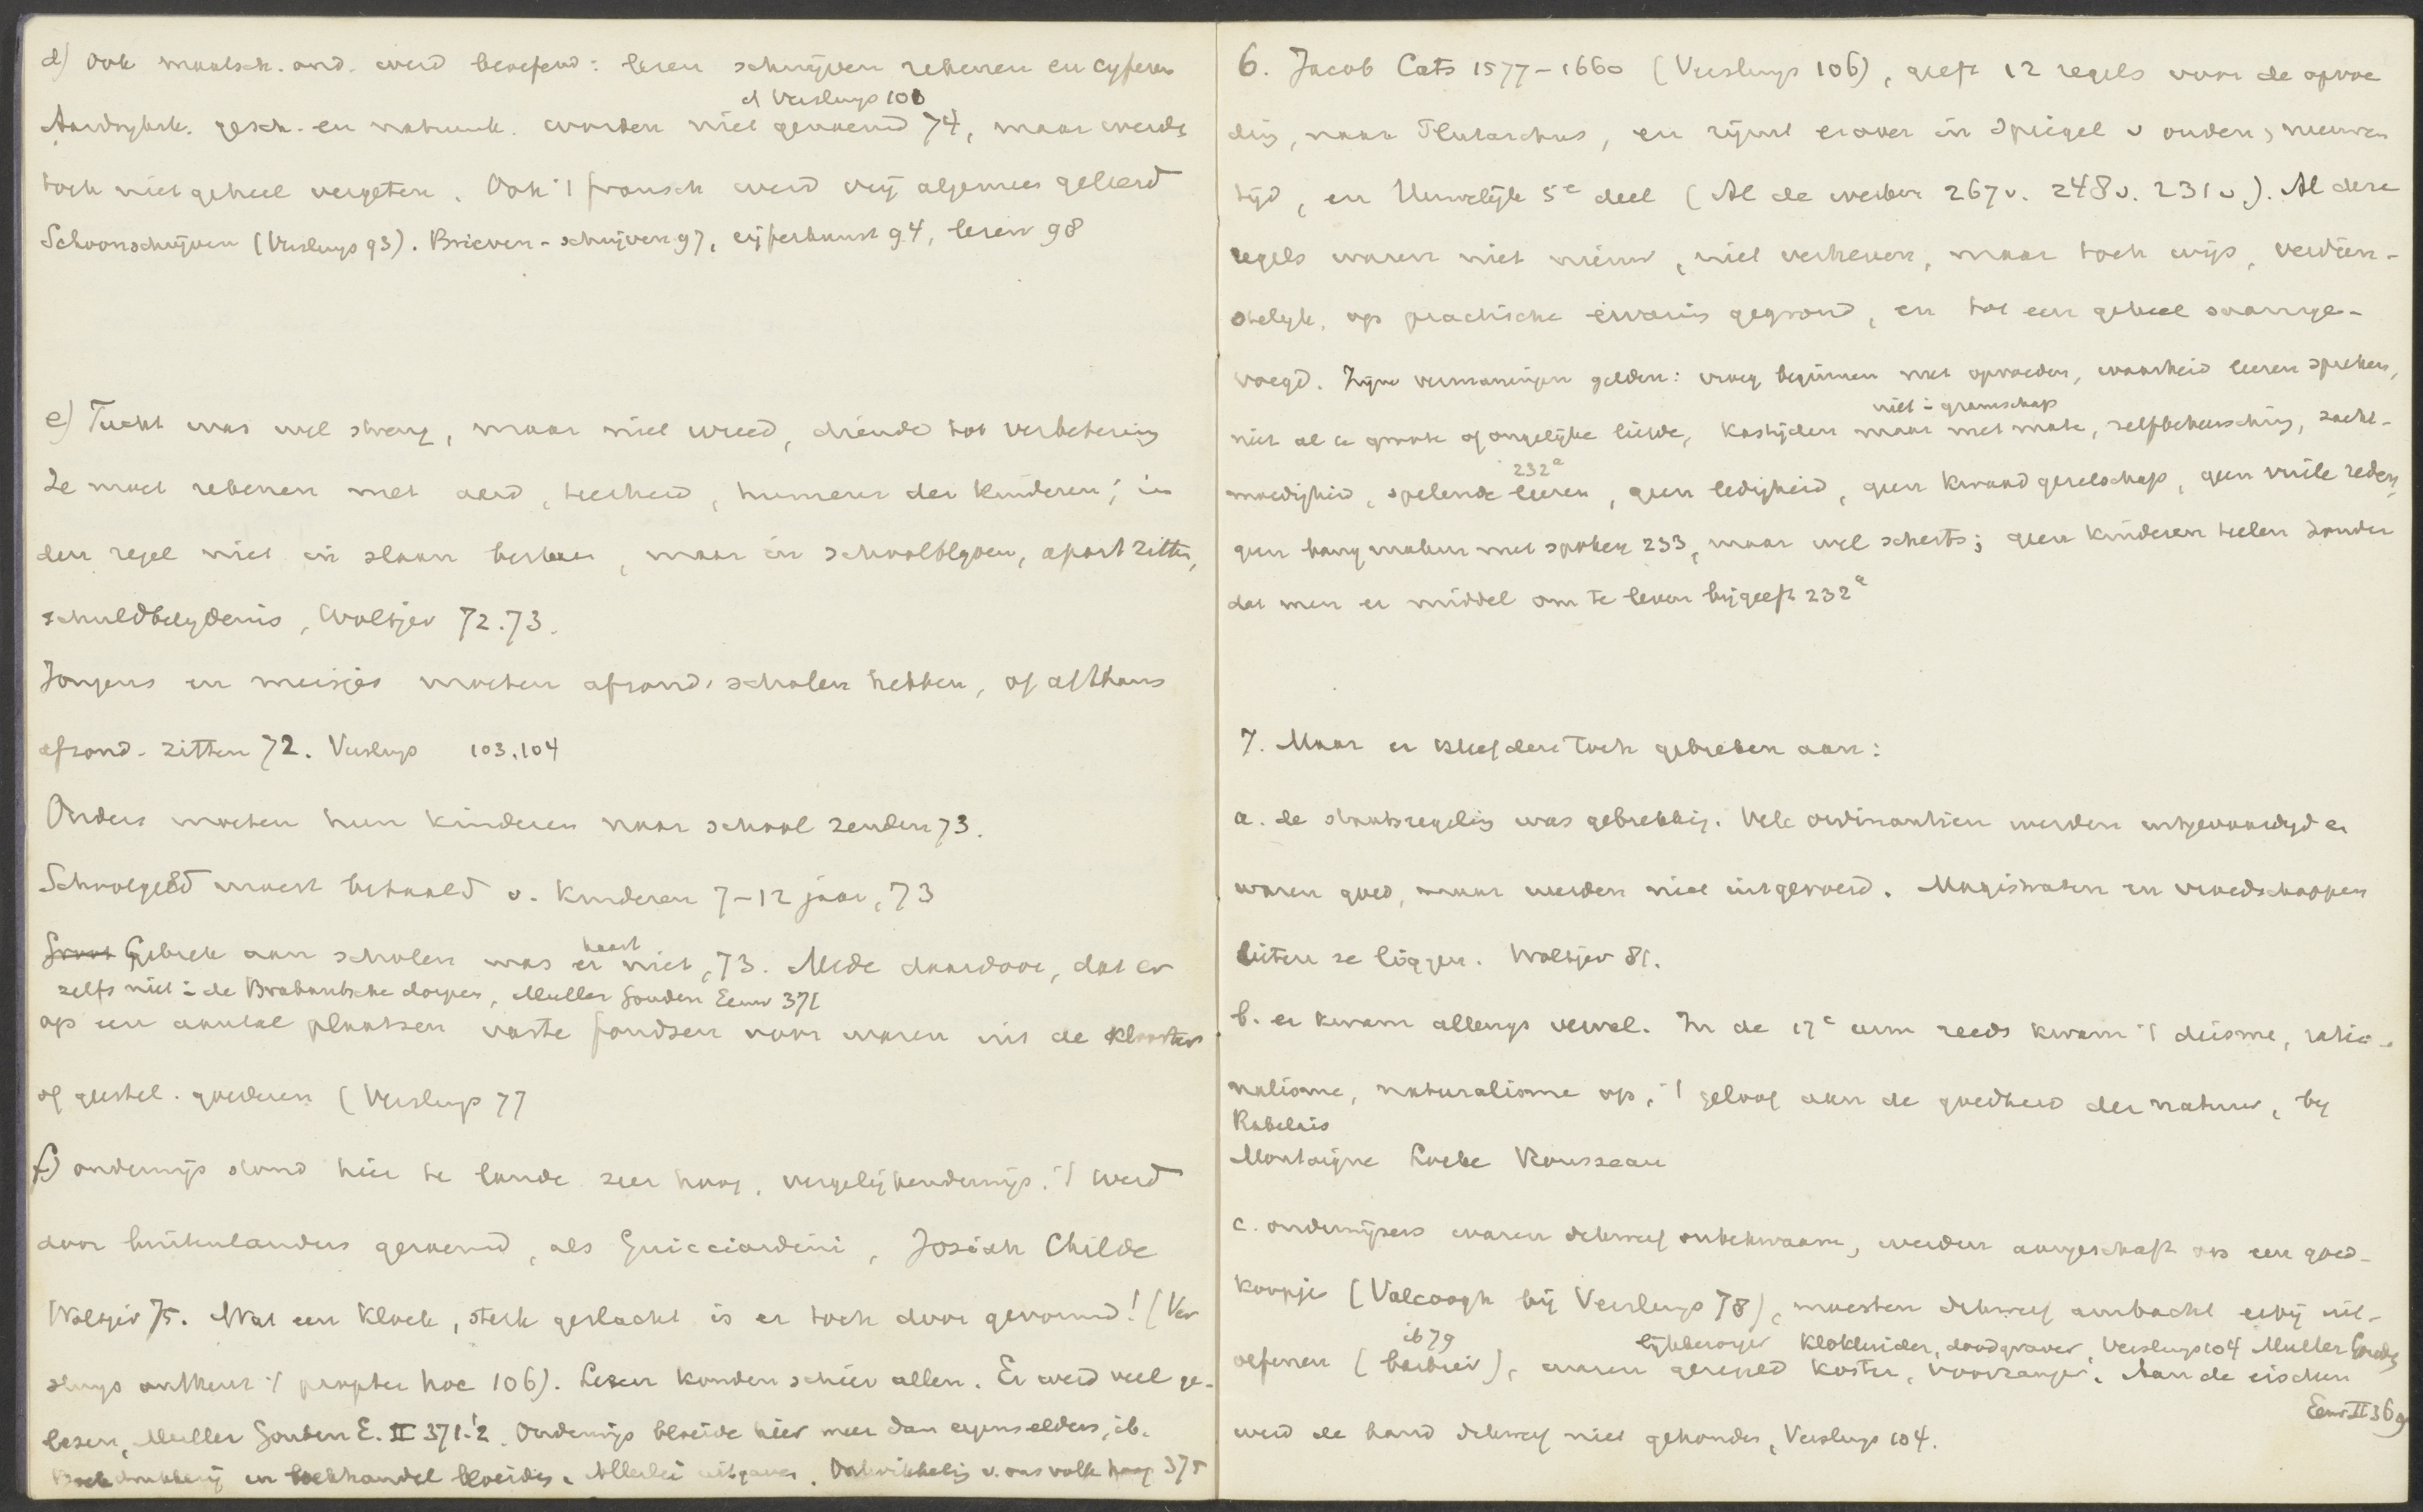 d) Ook maatsch. ond. werd beoefend: lezen schrijven rekenen en cyferen
cf Versluys 100
Aardrijksk. gesch. en natuurk. worden niet genoemd 74, maar werde
toch niet geheel vergeten. Ook 't fransch werd vrij algemeen geleerd
Schoonschrijven (Versluys 93). Brieven-schrijven 97, cijferkunst 94, lezen 98
e) Tucht was wel streng, maar niet wreed, diende tot verbetering
Ze moet rekenen met aard, teerheid, humeur der kinderen; in
den regel niet in slaan bestaan, maar in schoolblyven, apart zitten,
schuldbelydenis, Woltjer 72.73.
Jongens en meisjes moeten afzond. scholen hebben, of althans
afzond. zitten 72. Versluys 103.104
Ouders moeten hun kinderen naar school zenden 73.
Schoolgeld moest betaald v. kinderen 7-12 jaar, 73
Groot Gebrek aan scholen was er haast niet, 73. Mede daardoor, dat er
zelfs niet in de Brabantsche dorpen, Muller Gouden Eeuw 371
op een aantal plaatsen vaste fondsen voor waren uit de klooster
of geestel. goederen (Versluys 77
f) onderwijs stond hier te lande zeer hoog, vergelijkenderwijs. 't werd
door buitenlanders geroemd, als Guicciardini, Josiah Childe
Woltjer 75. Wat een kloek, sterk geslacht is er toch door gevormd! (Ver
sluys ontkent 't propter hoc 106). Lezen konden schier allen. Er werd veel ge-
lezen, Muller Gouden E. II 371.2. Onderwijs bloeide hier meer dan ergens elders, ib.
Boekdrukkerij en boekhandel bloeiden. Allerlei uitgaven. Ontwikkeling v. ons volk hoog 375
6. Jacob Cats 1577-1660 (Versluys 106), geeft 12 regels voor de opvoe
ding, naar Plutarchus, en rijmt erover in Spiegel v ouden, nieuwen
tijd, en Huwelijk 5e deel (Al de werken 267v. 248v. 231v.). Al deze
regels waren niet nieuw, niet verheven, maar toch wijs, verdien-
stelyk, op practische ervaring gegrond, en tot een geheel saamge-
voegd. Zijne vermaningen gelden: vroeg beginnen met opvoeden, waarheid leeren spreken,
niet in gramschap
niet al te groote of ongelijke liefde, kastijden maar met mate, zelfbeheersching, zacht-
232a
moedigheid, spelende leeren, geen ledigheid, geen kwaad gezelschap, geen vuile reden,
geen bang maken met spoken 233, maar wel scherts; geen kinderen telen zonder
dat men er middel om te leven bijgeeft 232a
7. Maar er kleefden toch gebreken aan:
a. de staatsregeling was gebrekkig. Vele ordinantien werden uitgevaardigd en
waren goed, maar werden niet uitgevoerd. Magistraten en vroedschappen
lieten ze liggen. Woltjer 81.
b. er kwam allengs verval. In de 17e eeuw reeds kwam 't deisme, ratio-
nalisme, naturalisme op, 't geloof aan de goedheid der natuur, by
Rabelais
Montaigne Locke Rousseau
c. onderwijzers waren dikwerf onbekwaam, werden aangeschaft op een goed-
koopje (Valcoogh bij Versluys 78), moesten dikwerf ambacht erbij uit-
ib 79 lijkbezorger klokluider, doodgraver, Versluys 104 Muller Gouden
oefenen (barbier), waren geregeld koster, voorzanger. Aan de eischen
Eeuw II 369
werd de hand dikwerf niet gehouden, Versluys 104.